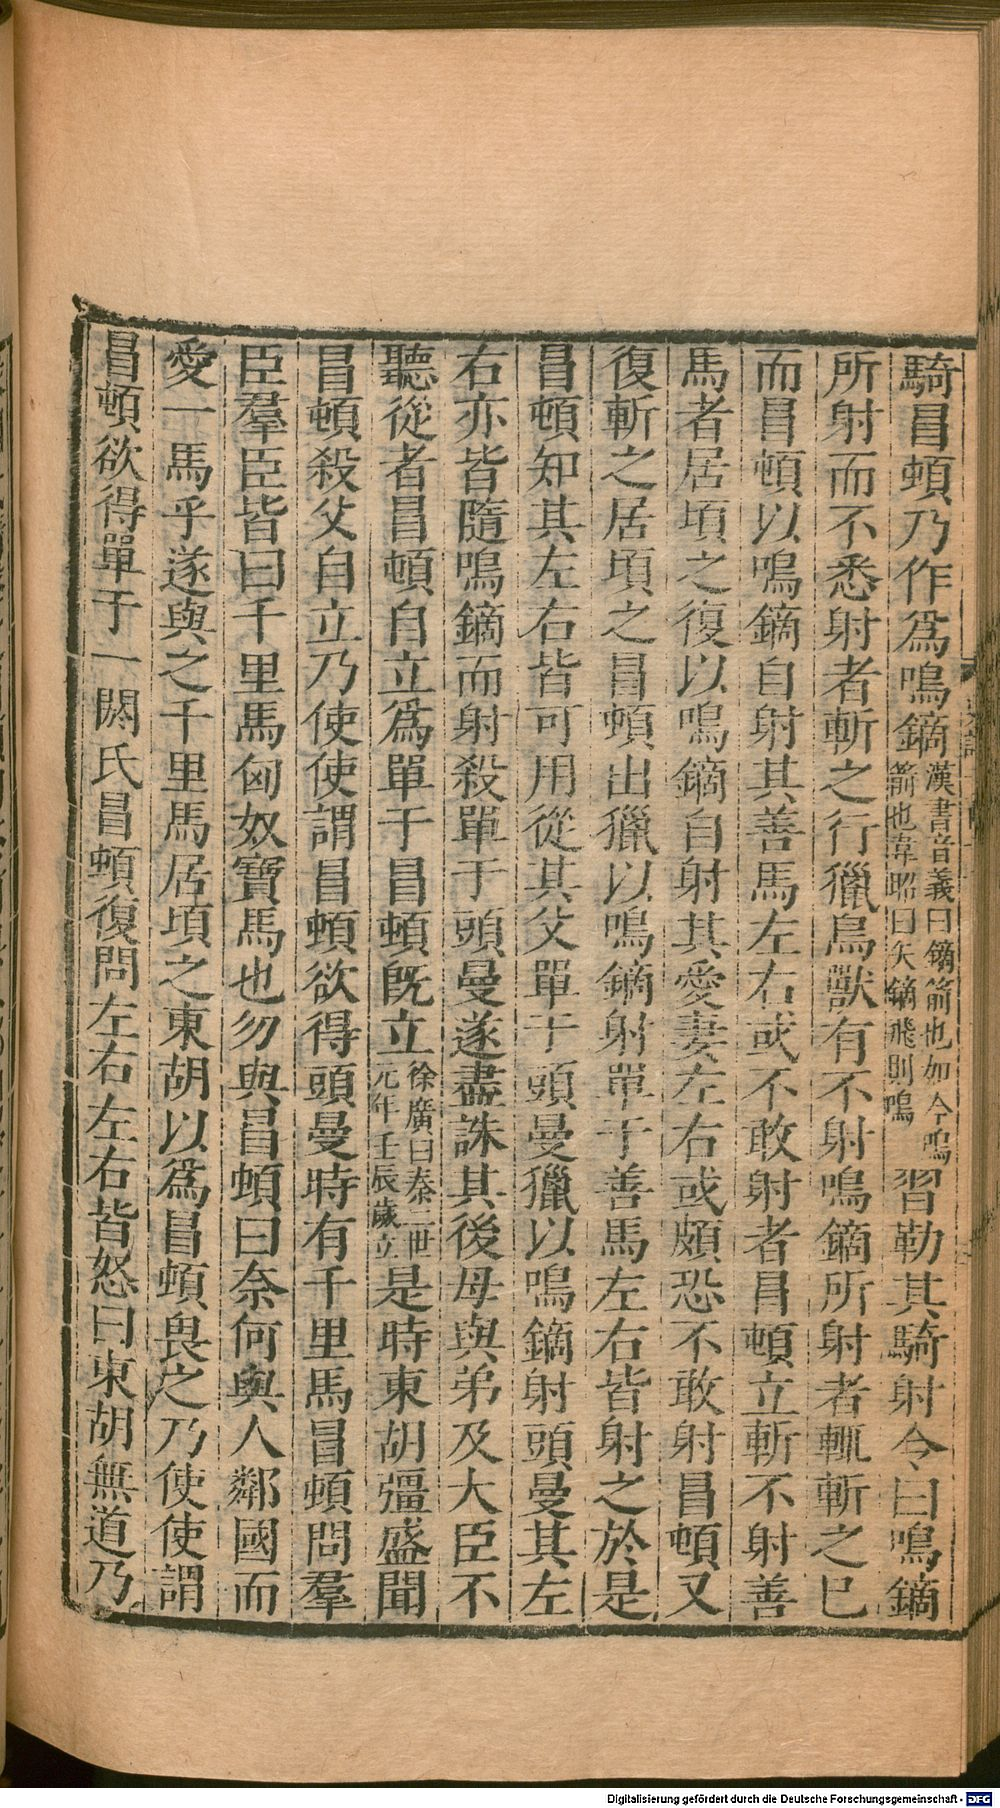 騎冒頓乃作爲鳴鏑漢書音義曰鏑箭也如今鳴箭也韋昭曰矢鏑飛則鳴習勒其騎射令曰鳴鏑
所射而不悉射者斬之行獵鳥獸有不射鳴鏑所射者輒斬之已
而冒頓以鳴鏑自射其善馬左右或不敢射者冒頓立斬不射善
馬者居頃之復以鳴鏑自射其愛妻左右或頗恐不敢射冒頓又
復斬之居頃之冒頓出獵以鳴鏑射單于善馬左右皆射之於是
冒頓知其左右皆可用從其父單于頭曼獵以鳴鏑射頭曼其左
右亦皆隨鳴鏑而射殺單于頭曼遂盡誅其後母與弟及大臣不
聽從者冒頓自立爲單于冒頓既立徐廣曰秦二世元年壬辰歲立是時東胡彊盛聞
冒頓殺父自立乃使使謂冒頓欲得頭曼時有千里馬冒頓問羣
臣羣臣皆曰千里馬匈奴寶馬也勿與冒頓曰奈何與人鄰國而
愛一馬乎遂與之千里馬居頃之東胡以爲冒頓畏之乃使使謂
冒頓欲得單于一閼氏冒頓復問左右左右皆怒曰東胡無道乃
Digitalisierung gefördert durch die Deutsche Forschungsgemeinschaft - DFG